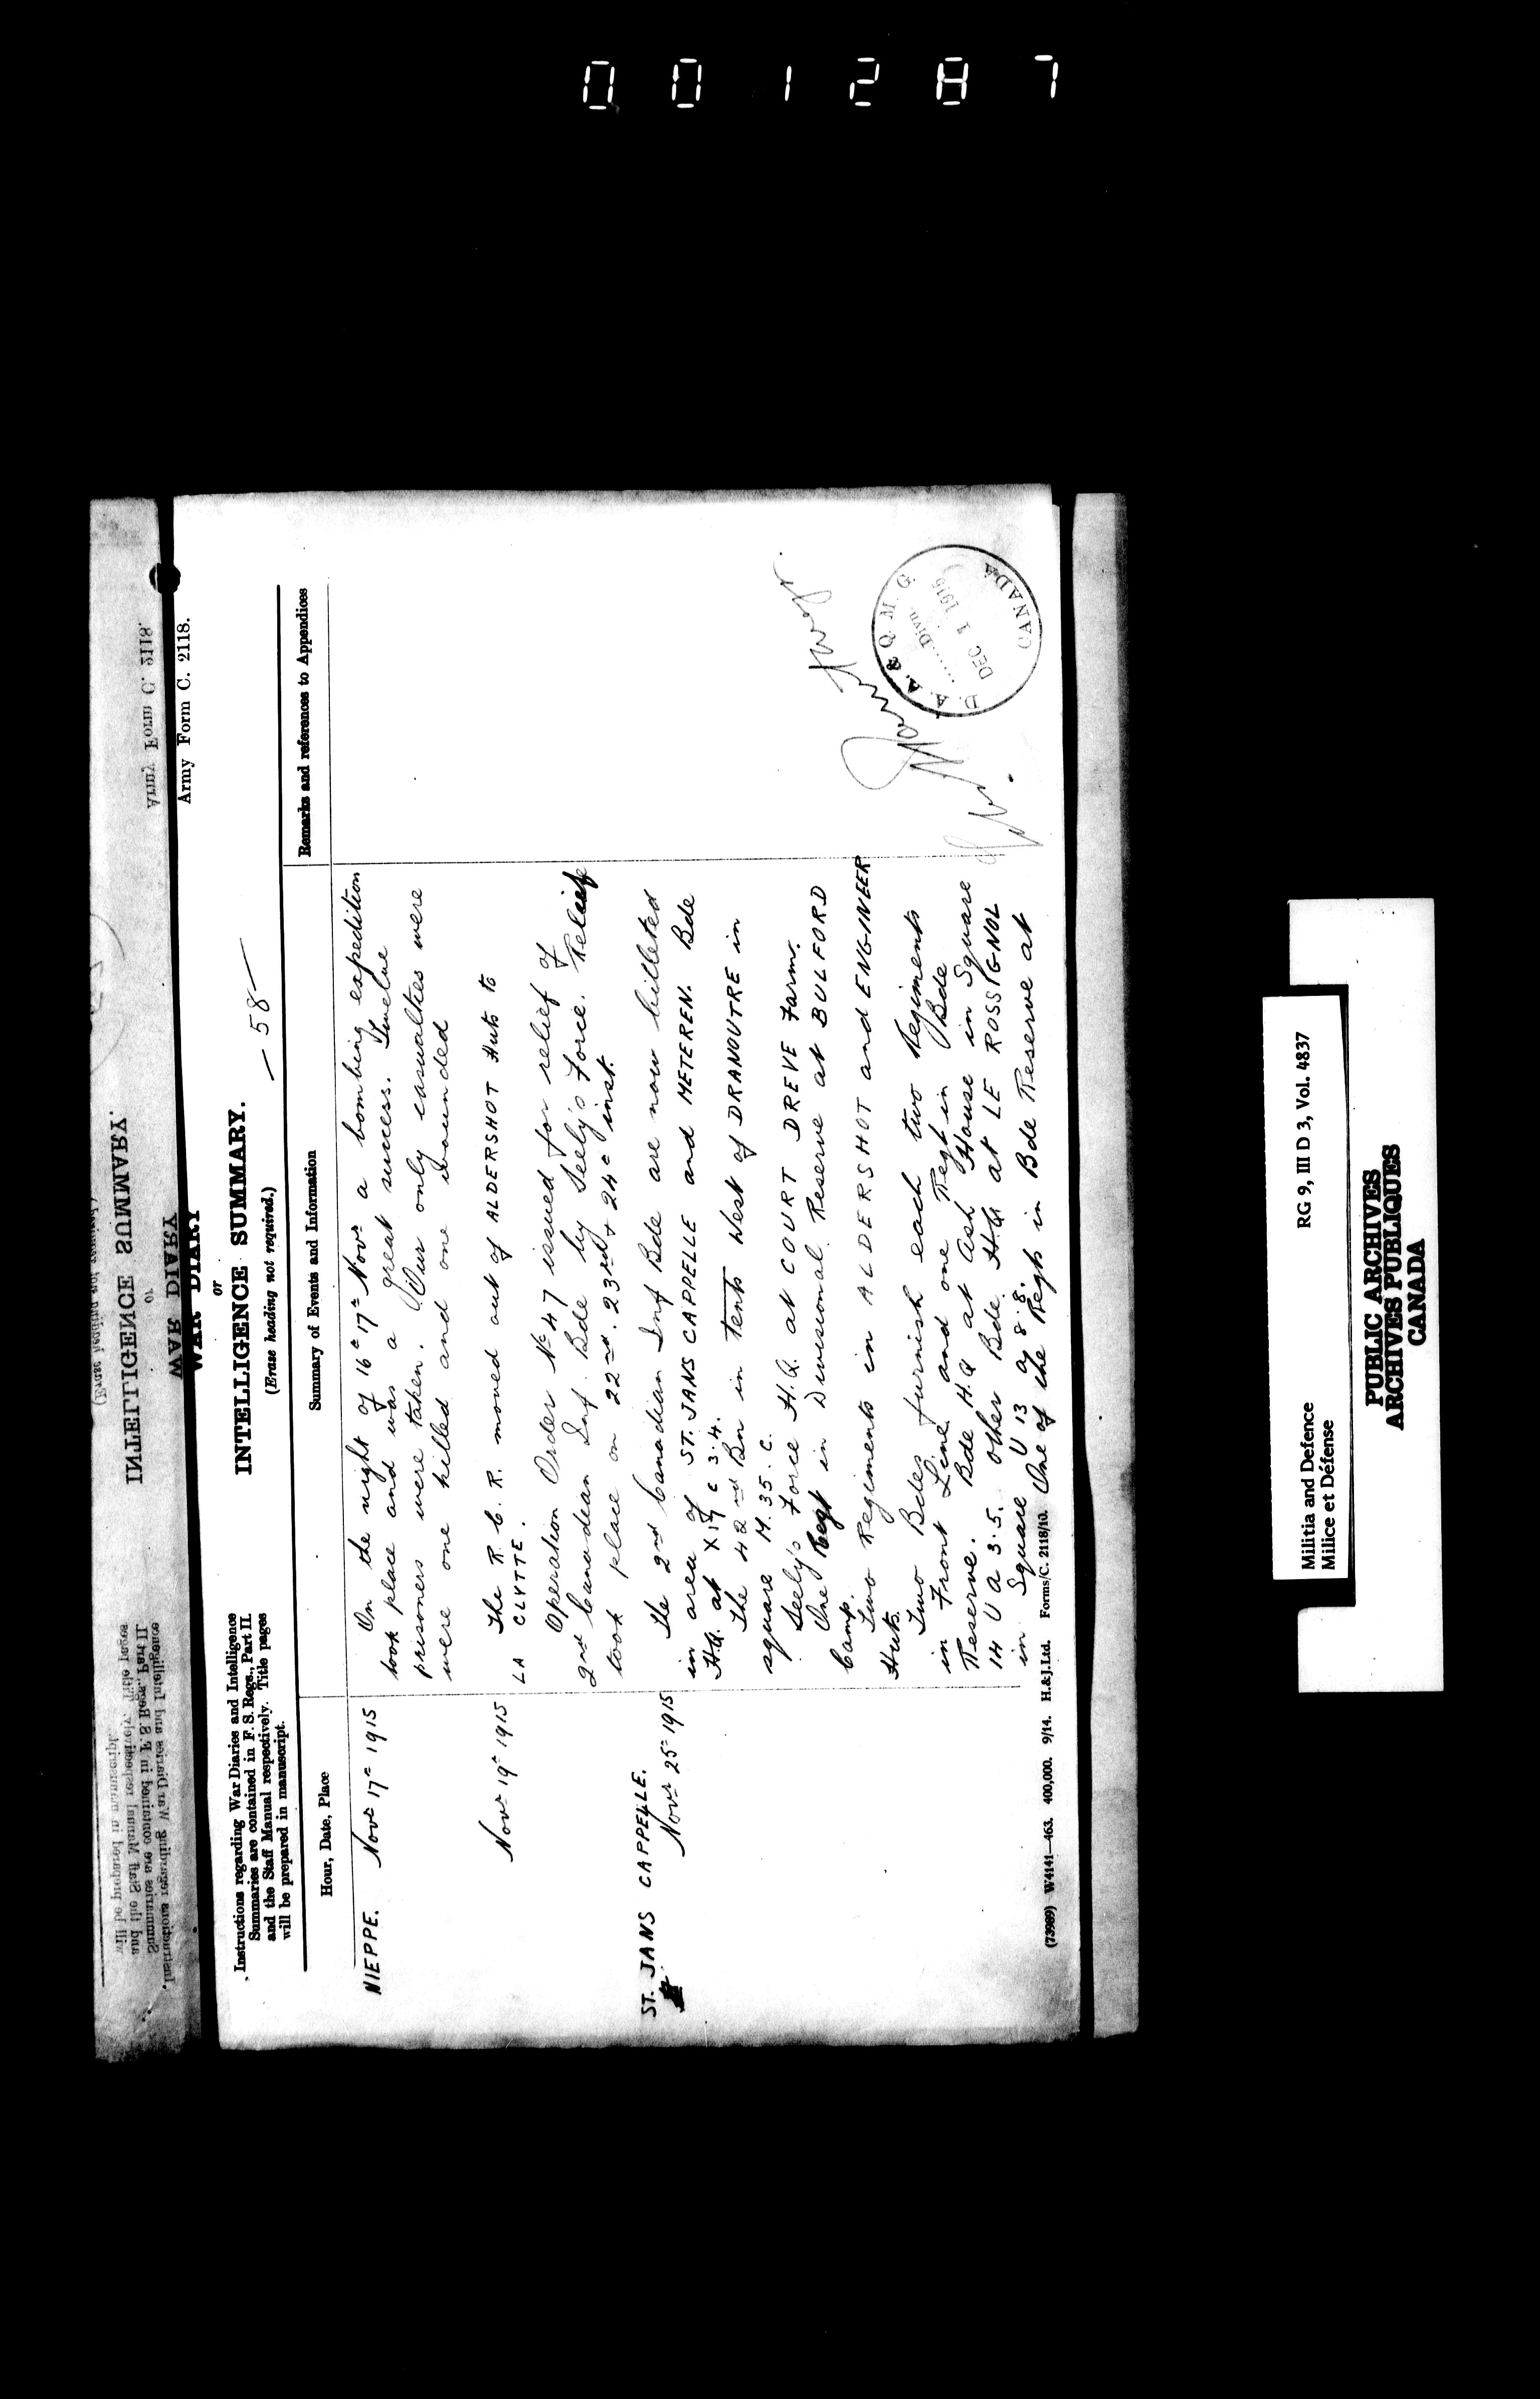 001287
Army Form C. 2118.
WAR DIARY
or
INTELLIGENCE SUMMARY.
(Erase heading not required.)
— 58 —
Instructions regarding War Diaries and Intelligence
Summaries are contained in F. S. Regs., Part II.
and the Staff Manual respectively. Title pages
will be prepared in manuscript.
Hour, Date, Place
Summary of Events and Information
Remarks and references to Appendices
NIEPPE. Novr 17th 1915
On the night of 16th 17th Novr a bombing expedition
took place and was a great success. Twelve
prisoners were taken. Our only casualties were
were one killed and one wounded
Novr 19th 1915
The R. C. R. moved out of ALDERSHOT Huts to
LA CLYTTE.
Operation Order No 47 issued for relief of
2nd Canadian Inf. Bde by Seely's Force. Relief
took place on 22nd. 23rd + 24th inst.
ST. JANS CAPPELLE.
Novr 25th 1915
The 2nd Canadian Inf Bde are now billeted
in area of ST. JANS CAPPELLE and METEREN. Bde
H.Q. at X 17 c 3.4.
The 42nd Bn in tents West of DRANOUTRE in
square M. 35. C.
Seely's Force H.Q. at COURT DREVE Farm.
One Regt in Divisional Reserve at BULFORD
Camp.
Two Regiments in ALDERSHOT and ENGINEER
Huts.
Two Bdes furnish each two Regiments
in Front Line and one Regt in Bde
Reserve. Bde H.Q at Ash House in Square
14 U a 3.5. other Bde H.Q at LE ROSSIGNOL
in Square U 13 a 8.8.
One of the Regts in Bde Reserve at
D. A. A. & Q. M. G
Divn.
DEC 1 1915
CANADA
(73989) W4141—463. 400,000. 9/14. H.&J.Ltd. Forms/C. 2118/10.
Militia and Defence
Milice et Défense
RG 9, III D 3, Vol. 4837
PUBLIC ARCHIVES
ARCHIVES PUBLIQUES
CANADA